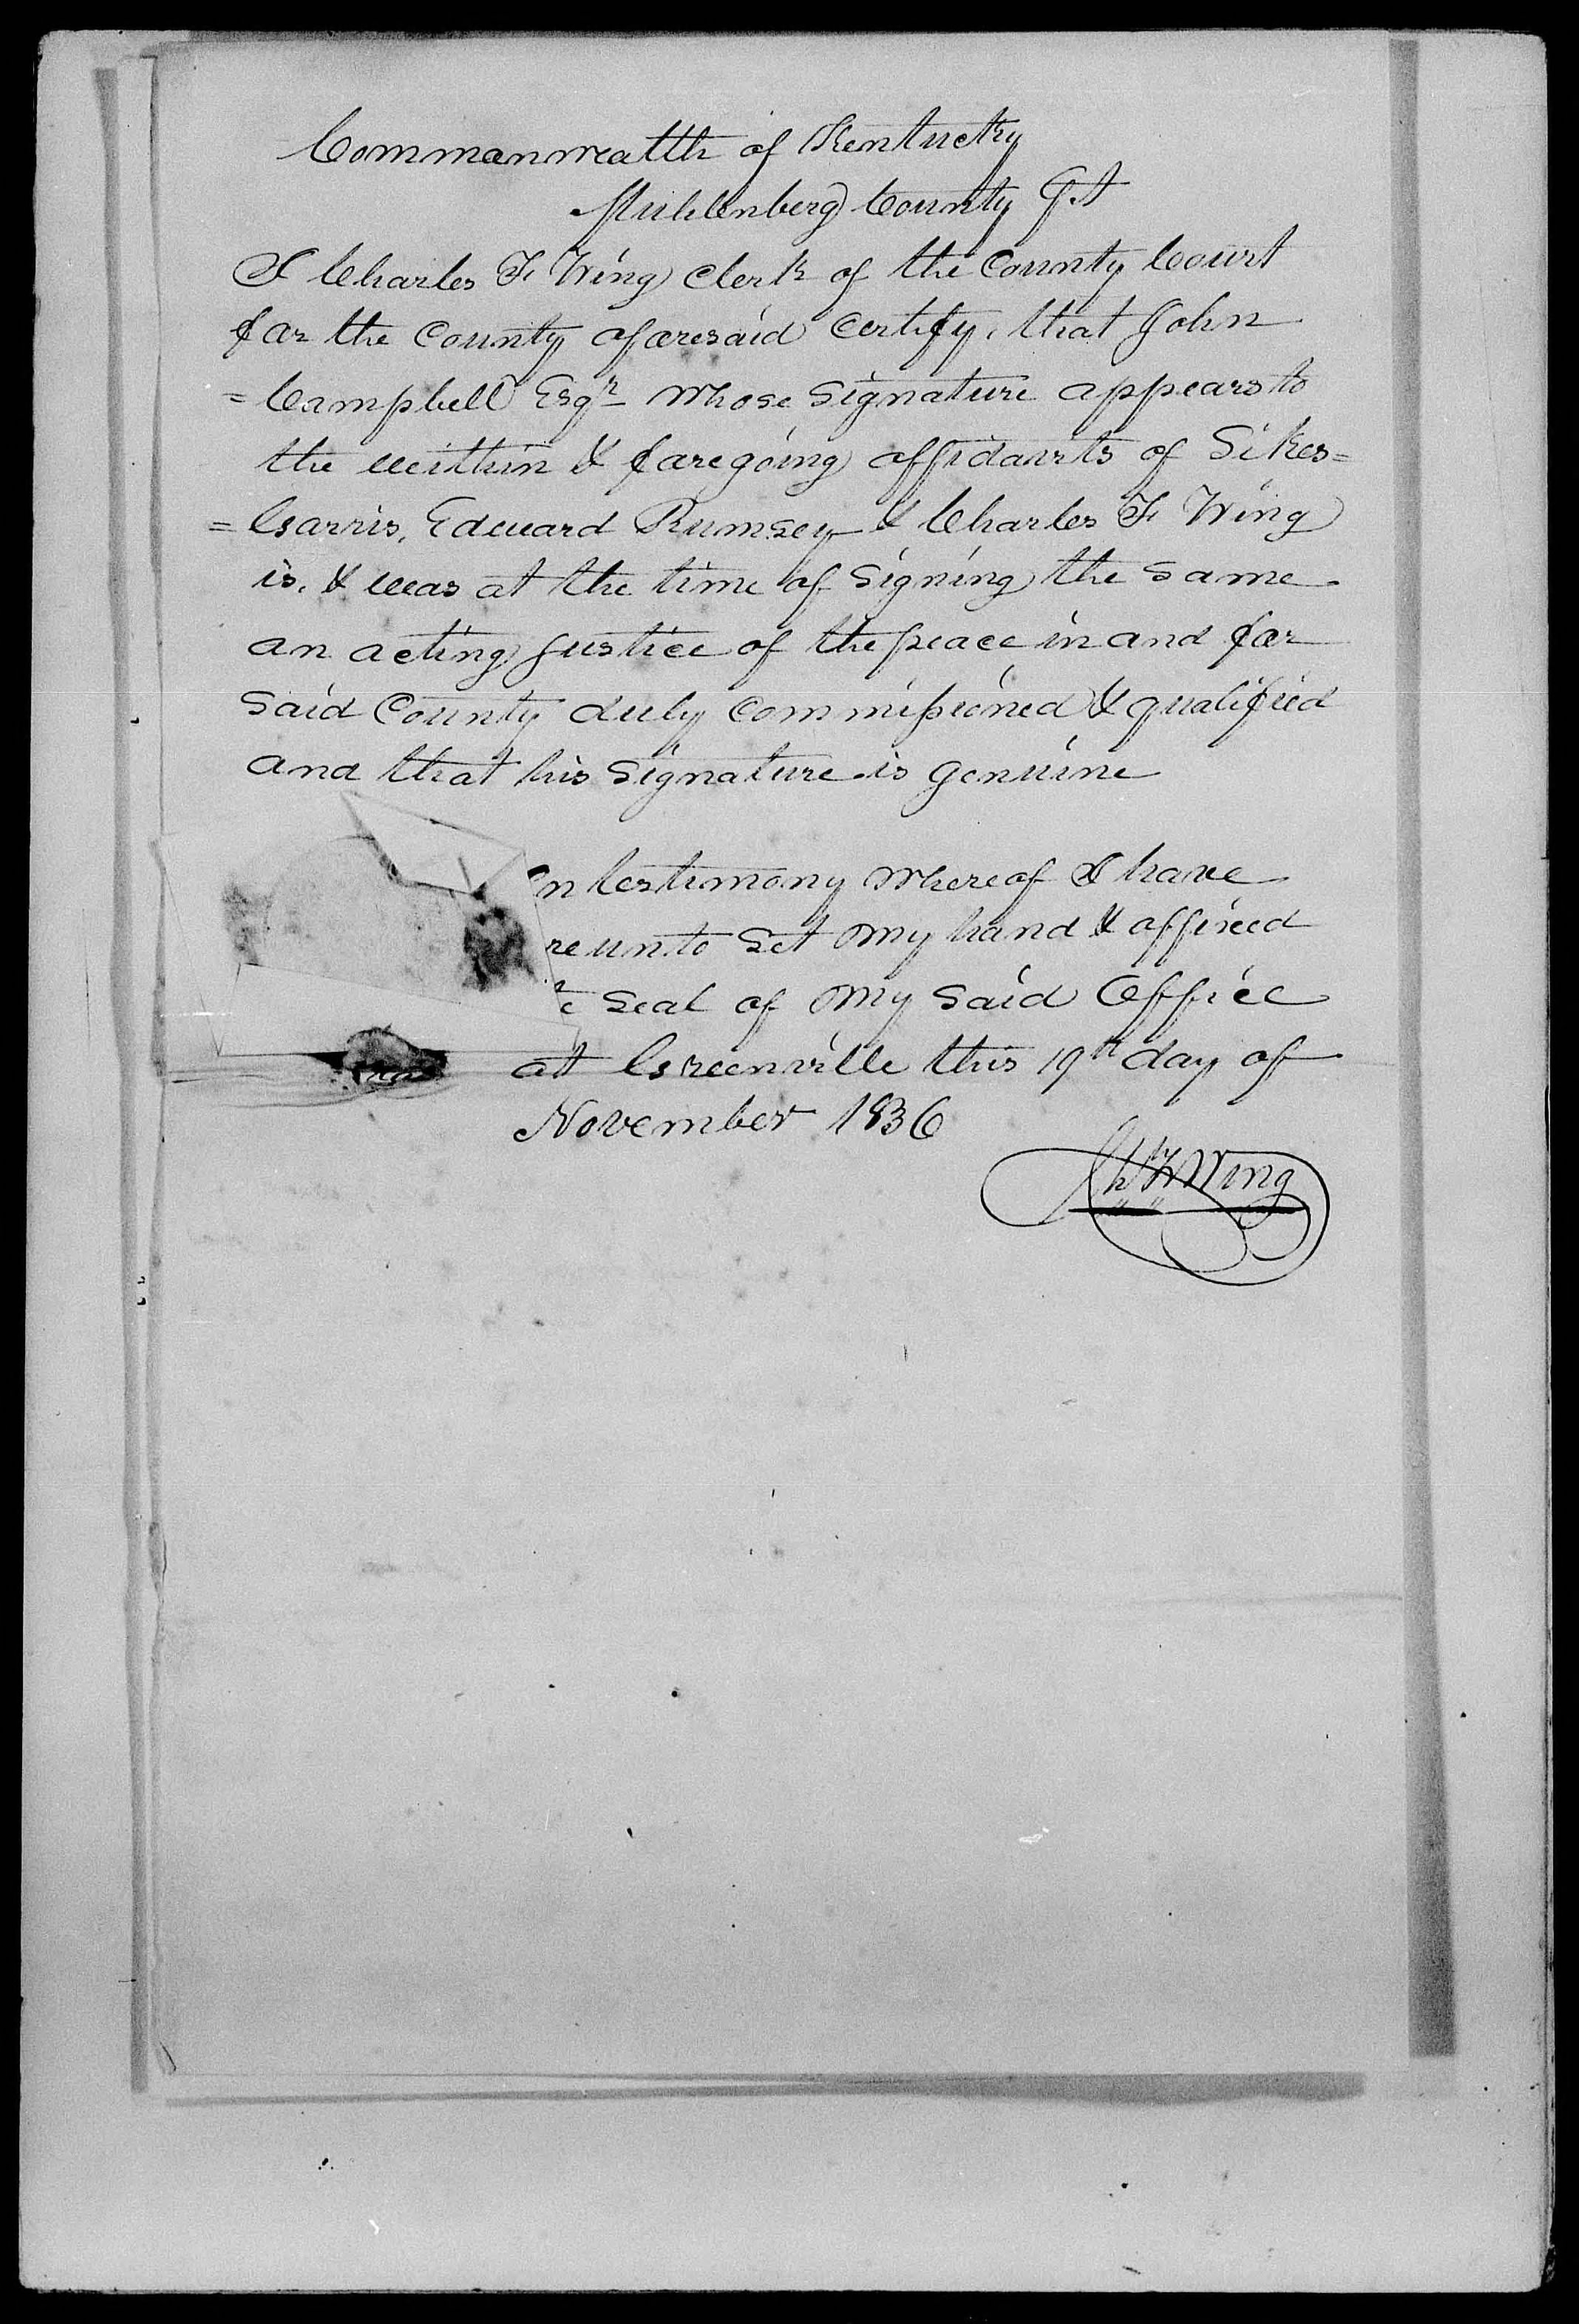 Commonwealth of Kentucky
Muhlenberg County Sct
I Charles F Wing clerk of the County Court
for the County aforesaid certify, that John
= Campbell Esqr whose signature appears to
the within & foregoing affidavits of Sikes=
= Garris, Edward Rumsey & Charles F Wing
is, & was at the time of signing the same
an acting Justice of the peace in and for
said County duly commissioned & qualified
and that his signature is genuine
In testimony whereof I have
reunto set my hand & affixed
e seal of my said Office
at Greenville this 19th day of
November 1836
Chs F Wing